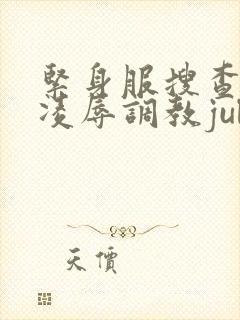 緊身服搜查
凌辱調教jul
天價